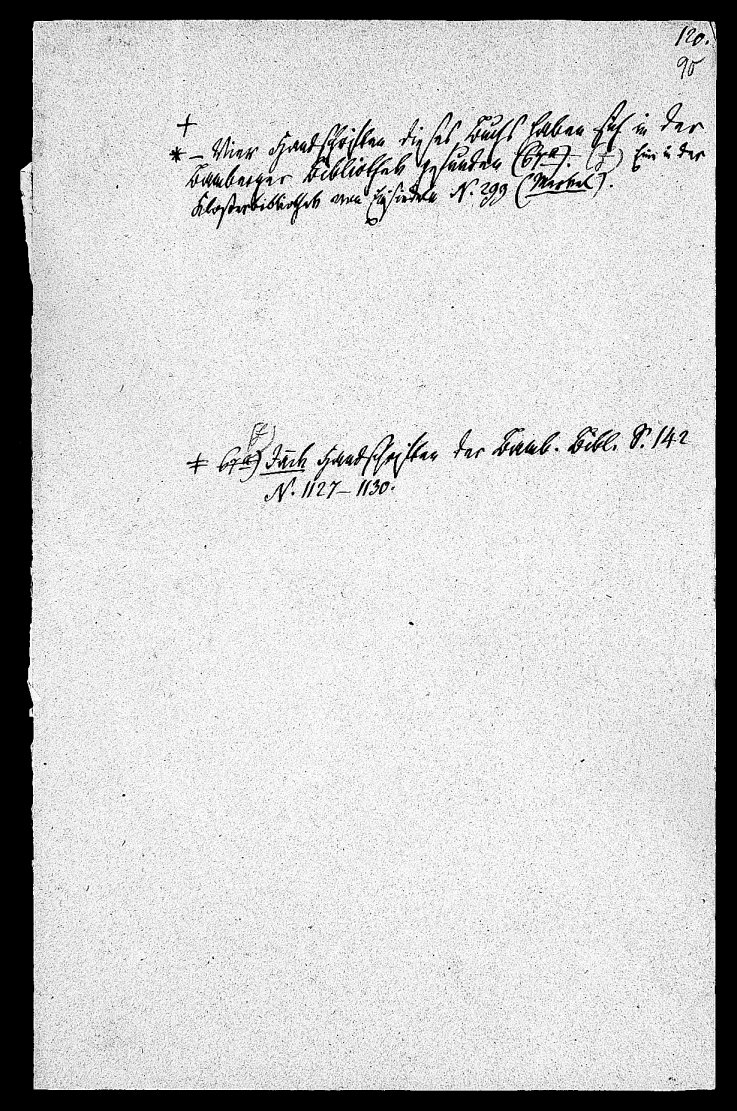 120.
90
+
* – Vier Handschriften dieses Buchs haben sich in der
Bamberger Bibliothek gefunden (67a). Ein in der
Klosterbibliothek von Einsiedeln N. 299 (Merkel).
‡ 67a) Jäck Handschriften der Bamb. Bibl. S. 142
N. 1127–1130.